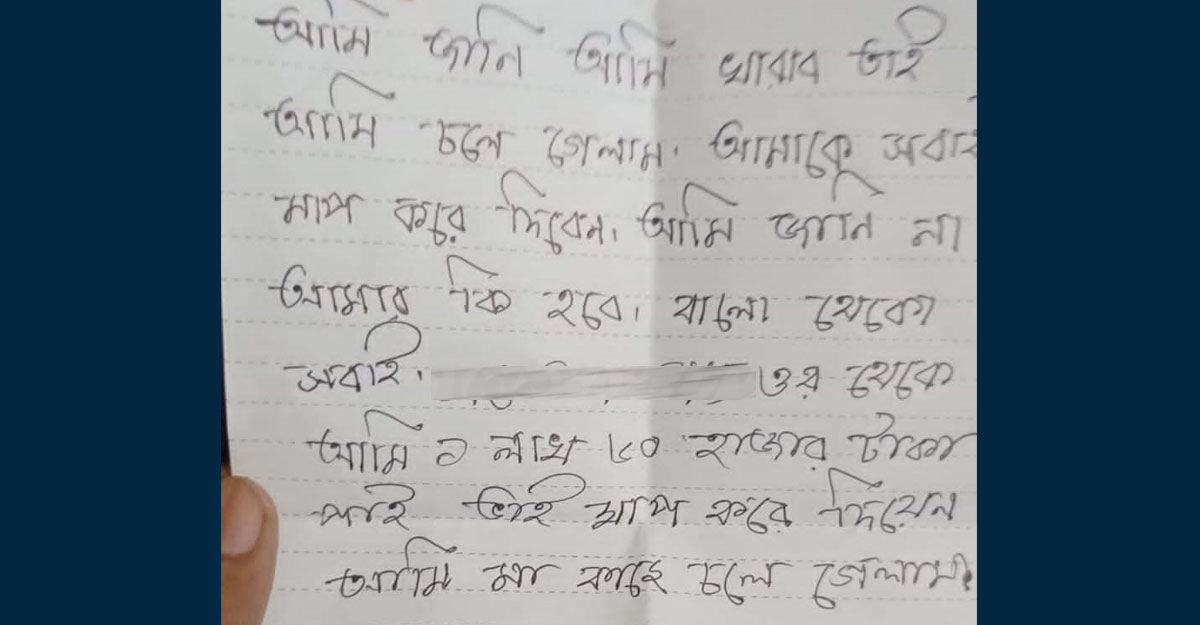 আমি জানি আমি খারাব তাই
আমি চলে গেলাম। আমাকে সবাই
মাপ করে দিবেন। আমি জানি না
আমার কি হবে। বালো থেকো
সবাই। ওর থেকে
আমি ১ লাখ ৮০ হাজার টাকা
পাই তাই মাপ করে দিয়েন
আমি মা কাছে চলে গেলাম।